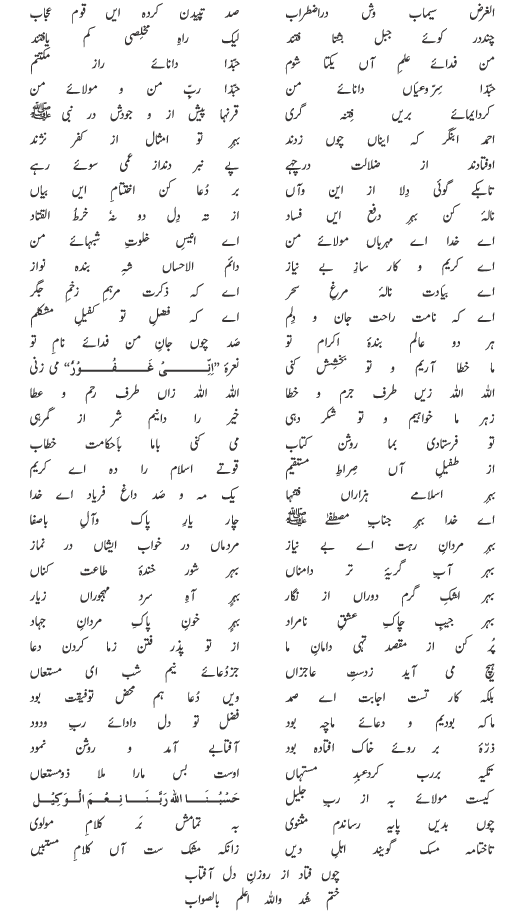 الغرض سیماب وش دراضطراب صد تپیدن کردہ ایں قوم عجاب
چنددر کوئے جبل بشتا فتند لیک راہِ مخلِصی کم یافتند
من فدائے علمِ آں یکتا شوم حبّذا دانائے رازِ مکتتم
حبّذا سِرّ و عیاں دانائے من حبّذا ربِّ من و مولائے من
کردایمائے بریں فتنہ گری قرنہا پیش از و جودش در نبی ﷺ
احمد ابنگر کہ ایناں چوں زدند بہرِ تو امثال از کفر نژند
اوفتادند از ضلالت درچہے پے نبر دنداز عمی سوئے رہے
تابکے گوئی دِلا از این وآں بر دُعا کن اختتامِ ایں بیاں
نالۂ کن بہرِ دفع ایں فساد از تہِ دِل دو نہٗ خرطُ القتاد
اے خدا اے مہرباں مولائے من اے انیسِ خلوتِ شبہائے من
اے کریم و کار سازِ بے نیاز دائم الاحساں شہِ بندہ نواز
اے بیادت نالۂ مرغِ سحر اے کہ ذکرت مرہمِ زخمِ جگر
اے کہ نامت راحتِ جان و دِلم اے کہ فضلِ تو کفیلِ مشکلم
ہر دو عالم بندۂ اکرام تو صد چوں جانِ من فدائے نام تو
ما خطا آریم و تو بخشِش کنی نعرۂ ”اِنِّیْ غَفُوْرٌ“ می زنی
اللہ اللہ زیں طرف جرم و خطا اللہ اللہ زاں طرف رحم و عطا
زہر ما خواہیم و تو شکر دہی خیر را دانیم شر از گمرہی
تو فرستادی بما روشن کتاب می کنی باما باحکامت خطاب
از طفیلِ آں صِراطِ مستقیم قوتے اسلام را دہ اے کریم
بہرِ اسلامے ہزاراں فتنہا یک مہ و صد داغ فریاد اے خدا
اے خدا بہرِ جناب مصطفےٰ ﷺ چار یارِ پاک وآلِ باصفا
بہرِ مردانِ رہت اے بے نیاز مردماں در خواب ایشاں در نماز
بہرِ آبِ گریۂ تر دامناں بہر شور خندۂ طاعت کناں
بہر اشکِ گرم دوراں از نگار بہر آہِ سرد مہجوراں زیار
بہر جیبِ چاکِ عشقِ نامراد بہر خونِ پاکِ مردانِ جہاد
پُر کن از مقصد تہی دامانِ ما از تو پذر فتن زما کردن دعا
ہیچ می آید زدستِ عاجزاں جزدُعائے نیم شب ای مستعاں
بلکہ کار تست اجابت اے صمد ویں دُعا ہم محض توفیقت بود
ماکہ بودیم و دعائے ماچہ بود فضلِ تو دل دادائے ربِ ودود
ذرّۂ بر روئے خاک افتادہ بود آفتابے آمد و روشن نمود
تکیہ بررب کردعبدِ مستہاں اوست بس مارا ملا ذومستعاں
کیست مولائے بہ از ربِ جلیل حَسْبُنَا اللہُ رَبُّنَا نِعْمَ الْوَکِیْل
چوں بدیں پایہ رساندم مثنوی بہ تمامش بَر کلامِ مولوی
تاختامہ مسک گویند اہلِ دیں زانکہ مشک ست آں کلامِ مستبیں
چوں فتاد از روزنِ دل آفتاب
ختم شُد واللہ اعلم بالصواب